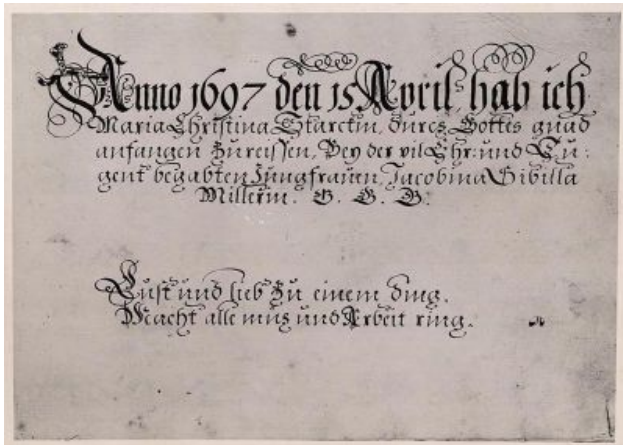 Anno 1697 den 15 April, hab ich
Maria Christina Starckin, durch Gottes gnad
anfangen Zureissen, Bey der vil Ehr: und Tu:
gent begabten Jungfrauen, Jacobina Sibilla
Millerin. G. G. G.
Lust und lieb Zu einem ding.
Macht alle müh und Arbeit ring.